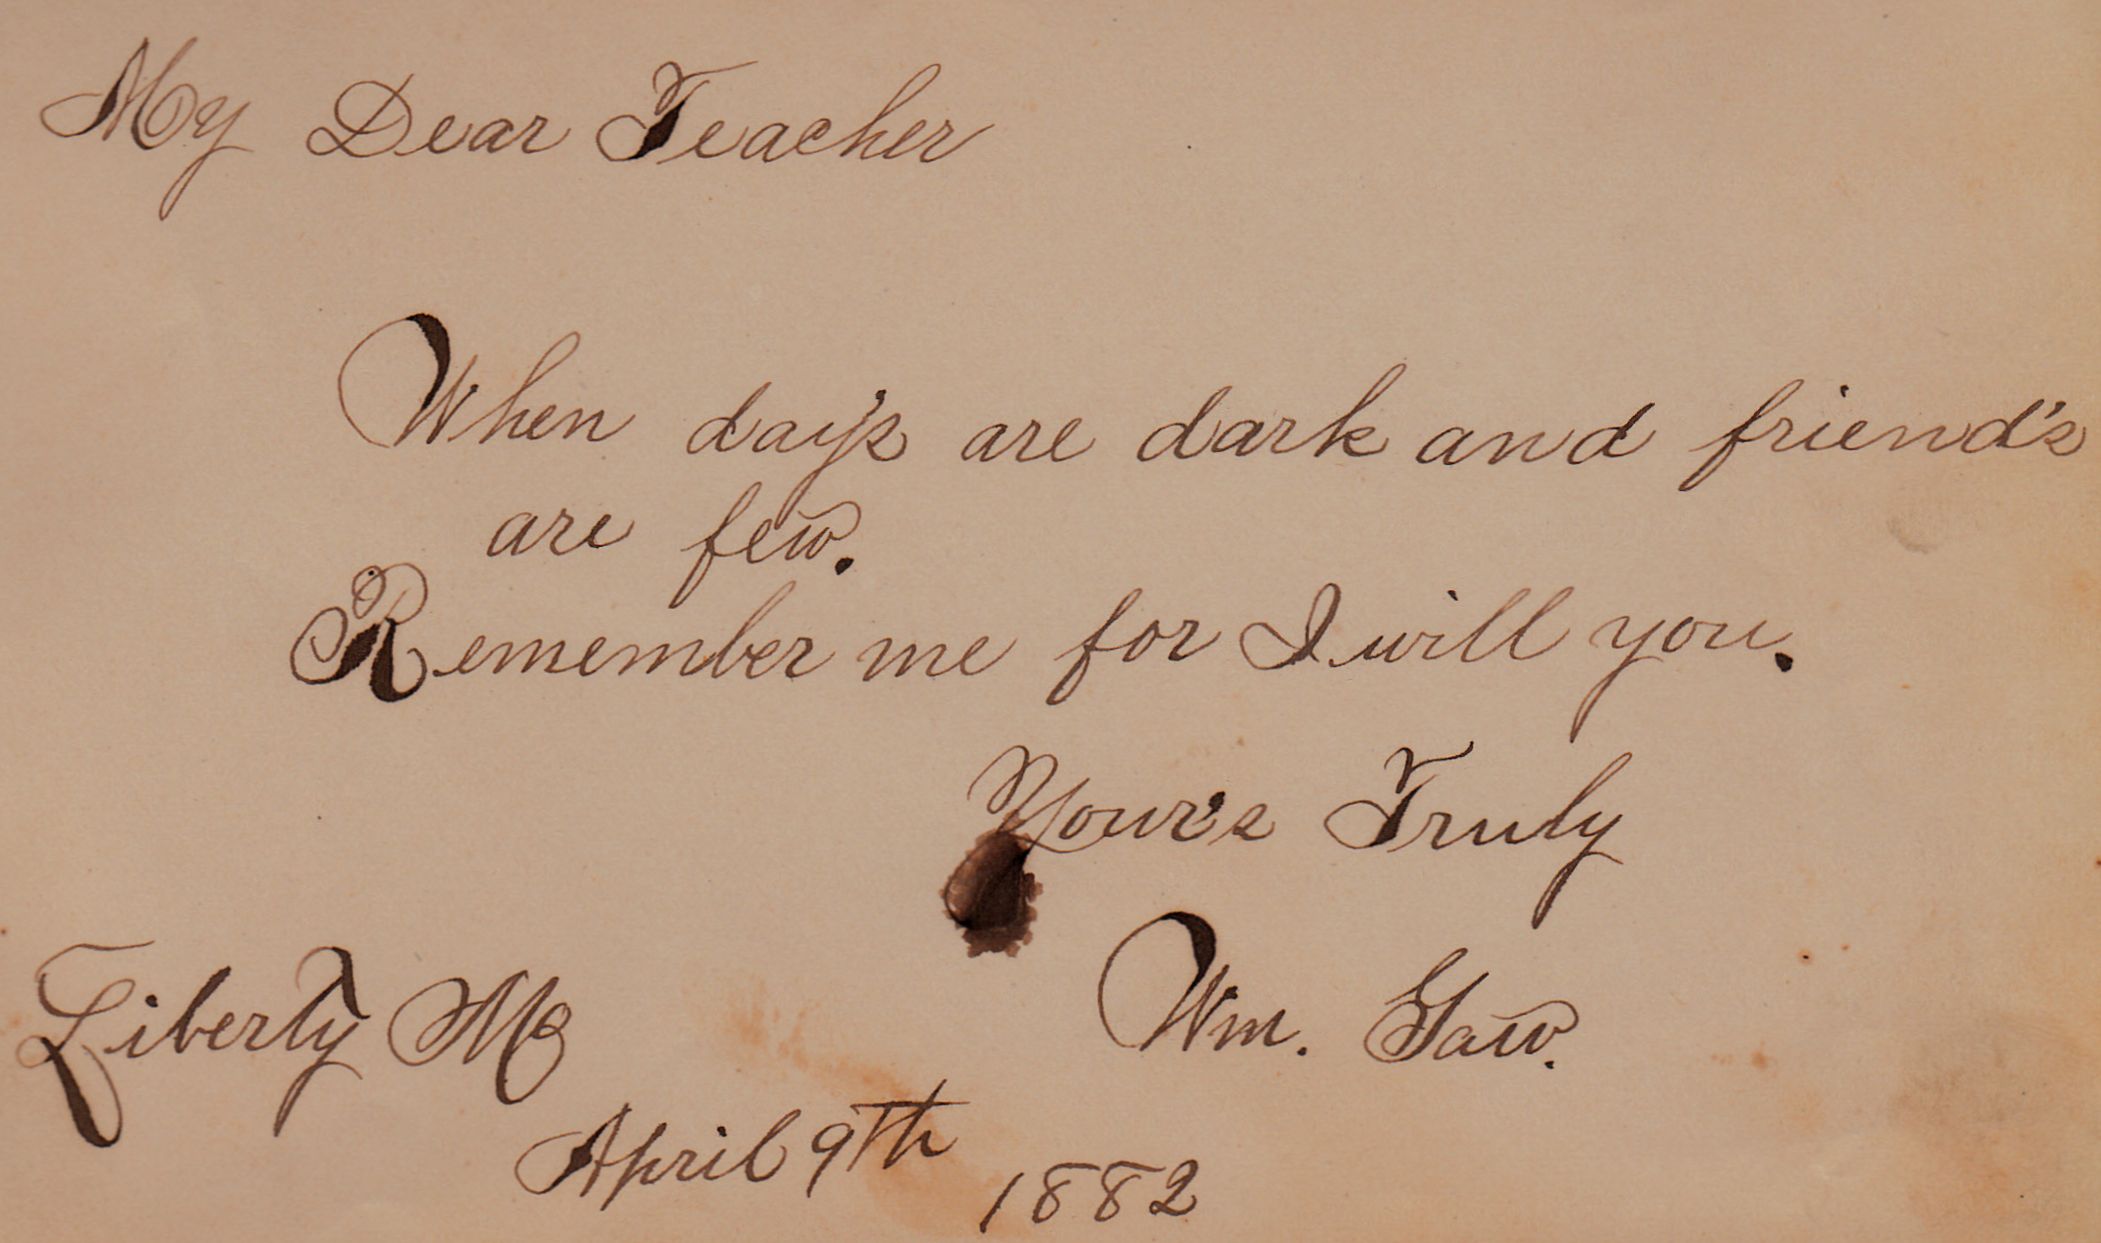 My Dear Teacher
When day's are dark and friend's
are few.
Remember me for I will you.
Your's Truly
Wm. Gaw.
Liberty Mo
April 9th 1882